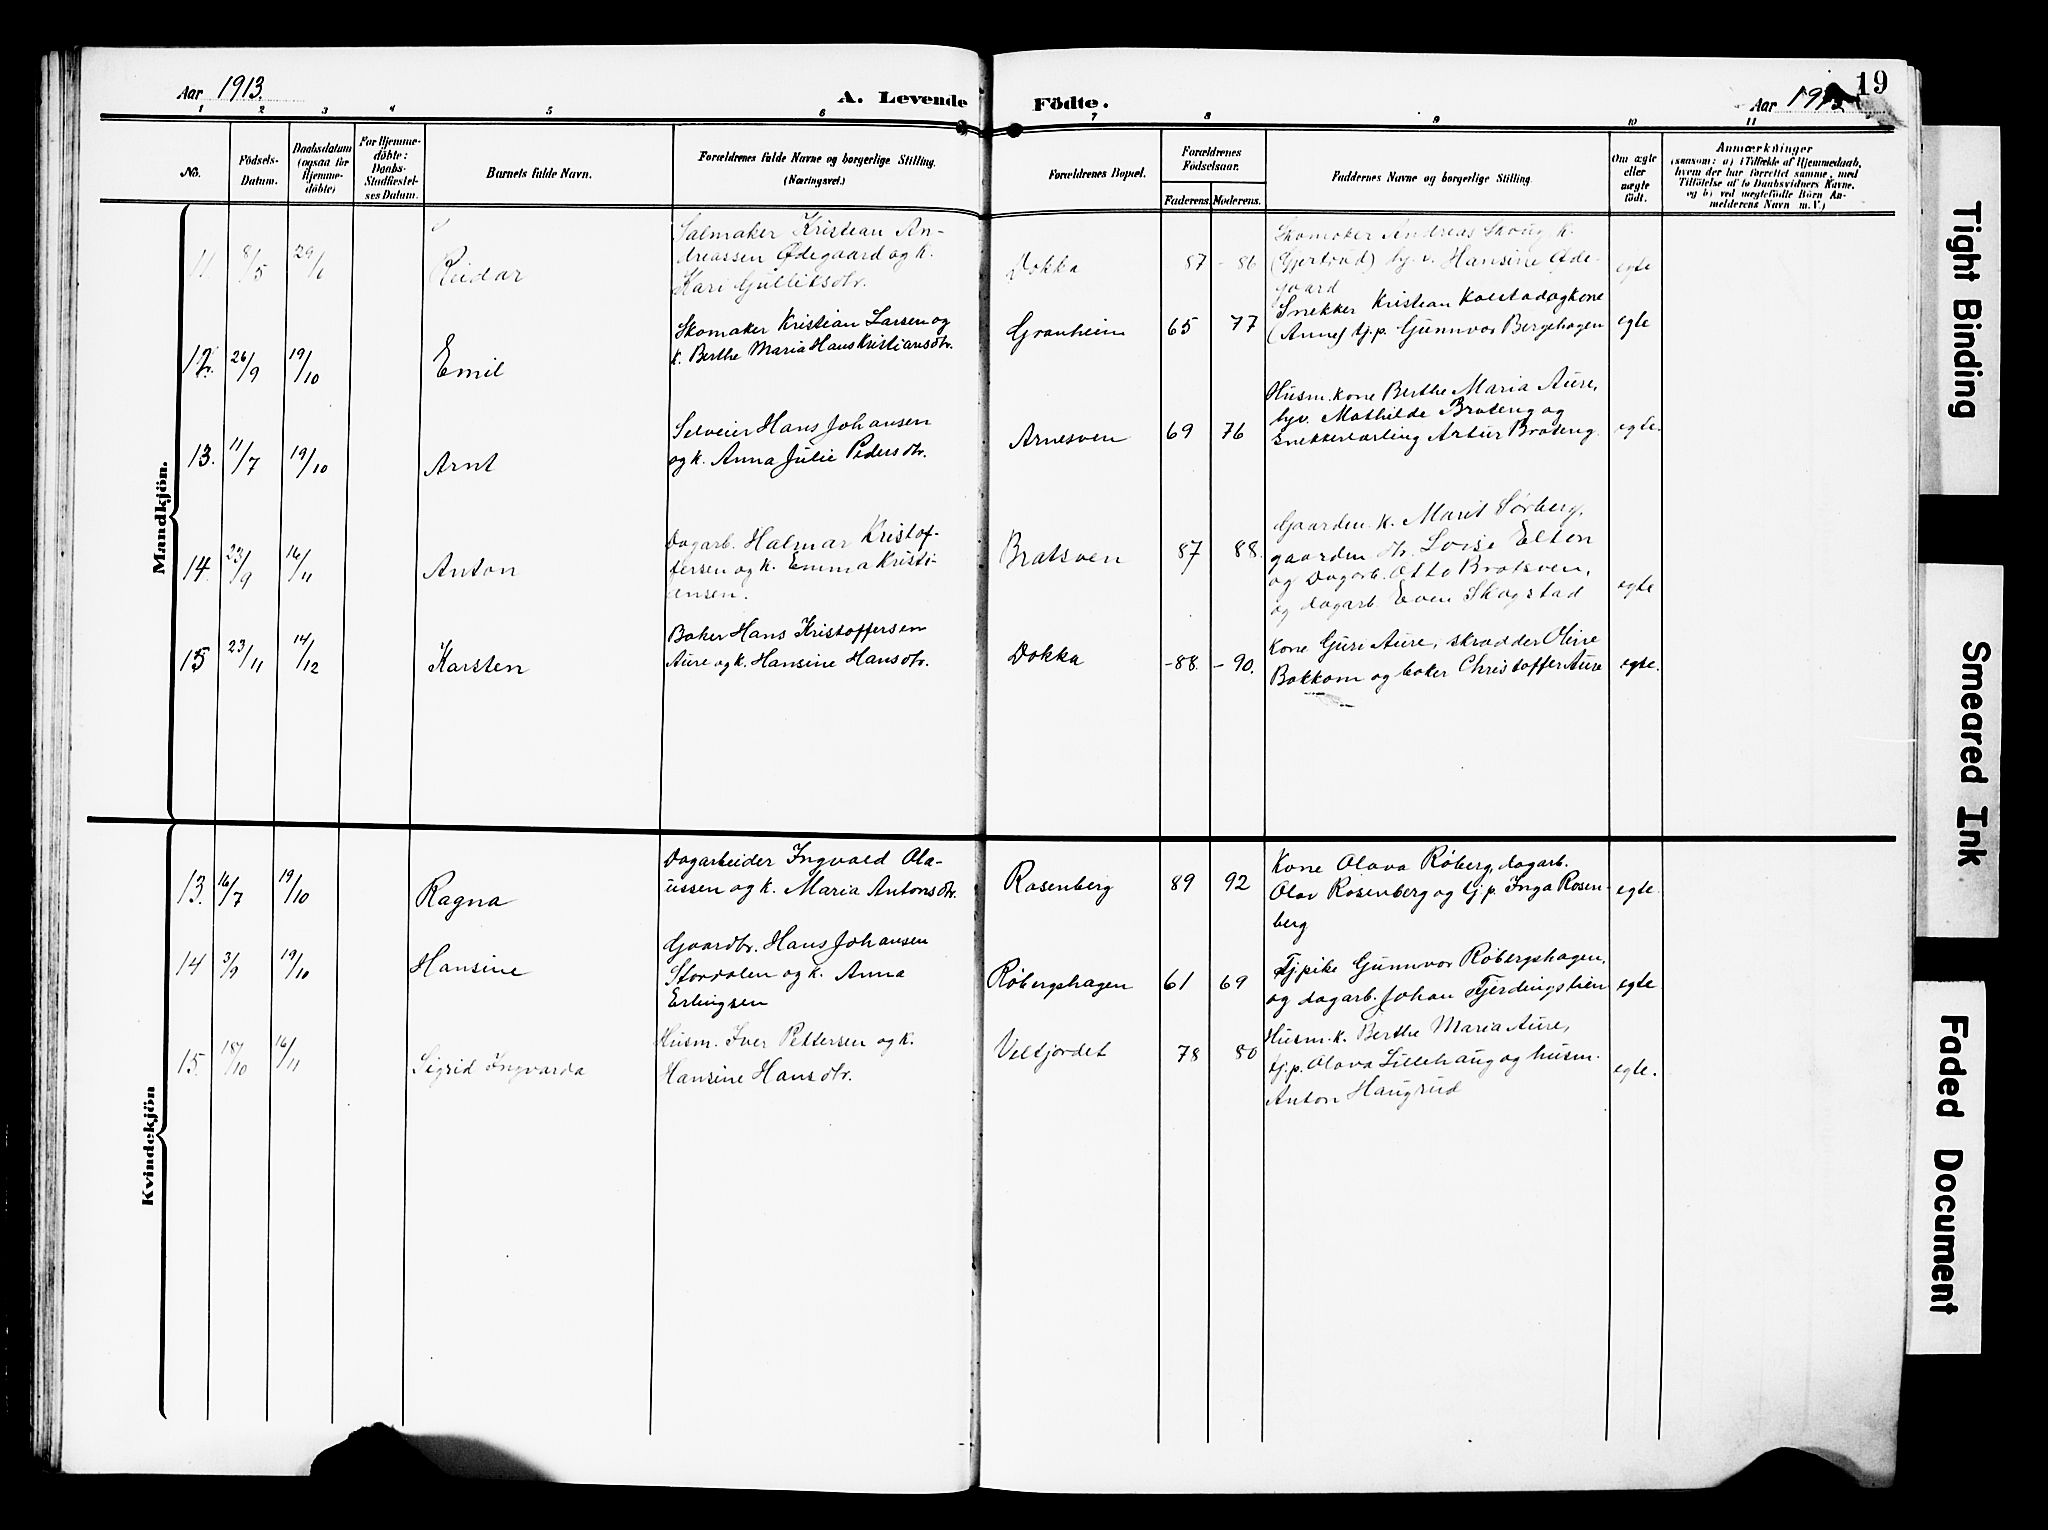 Aar 1913.
A. Levende Födte.
Aar 1913.
19
1 2 3 4 5 6 7 8 9 10 11
No.
Födsels-
Datum.
Daabsdatum
(ogsaa for
Hjemme-
döbte)
For Hjemme-
döbte:
Daabs-
Stadfæstel-
ses Datum.
Barnets fulde Navn.
Forældrenes fulde Navne og borgerlige Stilling.
(Næringsvei.)
Forældrenes Bopæl.
Forældrenes
Födselsaar.
Faderens. Moderens.
Faddernes Navne og borgerlige Stilling.
Om ægte
eller
uægte
födt.
Anmærkninger
(saasom: a) i Tilfælde af Hjemmedaab,
hvem der har forrettet samme, med
Tilföielse af to Daabsvidners Navne,
og b) ved uægtefödte Börn An-
melderens Navn m. V.)
Mandkjön.
11 8/5 29/6
Reidar
Salmaker Kristian An-
dreassen Ødegaard og k.
Kari Gulliksdtr.
Dokka
87 - 86
Skomaker Andreas Skoug k.
(Gjertrud) hj. v. Hansine Øde-
gaard
egte
12. 26/9 19/10
Emil
Skomaker Kristian Larsen og
k. Berthe Maria Hanskristiansdtr.
Granheim
65 77
Snekker Kristian Kolstad og kone
(Anne) tj.p. Gunnvor Bergehagen
egte
13. 11/7 19/10
Arnt
Selveier Hans Johansen
og k. Anna Julie Pedersdtr.
Arnesven
69 76
Husm. kone Berthe Maria Aure,
hjv. Mathilde Brateng og
snekkerlærling Artur Brateng.
egte.
14. 23/9 16/11
Anton
Dagarb. Halmar Kristof-
fersen og k. Emma Kristi-
ansen.
Bratsven
87 88.
Gaarden. k. Marit Sørberg,
gaarden. dtr. Lovise Elton
og Dagarb. Otto Bratsven,
og dagarb. Even Skogstad
egte
15 23/11 14/12
Karsten
Baker Hans Kristoffersen
Aure og k. Hansine Hansdtr.
Dokka
-88 - 90.
Kone Guri Aure, skrædder Oline
Bakkom og baker Christoffer Aure
egte.
Kvindekjön
13. 16/7 19/10
Ragna
Dagarbeider Ingvald Ola-
ussen og k. Maria Antonsdtr.
Rosenberg
89 92
Kone Olava Røberg, dagarb.
Olav Rosenberg og tj.p. Inga Rosen-
berg
egte.
14 3/9 19/10
Hansine
Gaardbr. Hans Johansen
Stordalen og k. Anna
Erlingsen
Røbergshagen
61 69
Tjpike Gunnvor Røbergshagen,
og dagarb. Johan Fjerdingstien
egte
15. 18/10 16/11
Sigrid Ingvarda
Husm. Iver Pettersen og k.
Hansine Hansdtr.
Veltjordet
78 80
Husm. k. Berthe Maria Aure,
tj.p. Olava Lillehaug og husm.
Anton Haugrud
egte.
Tight Binding
Smeared Ink
Faded Document